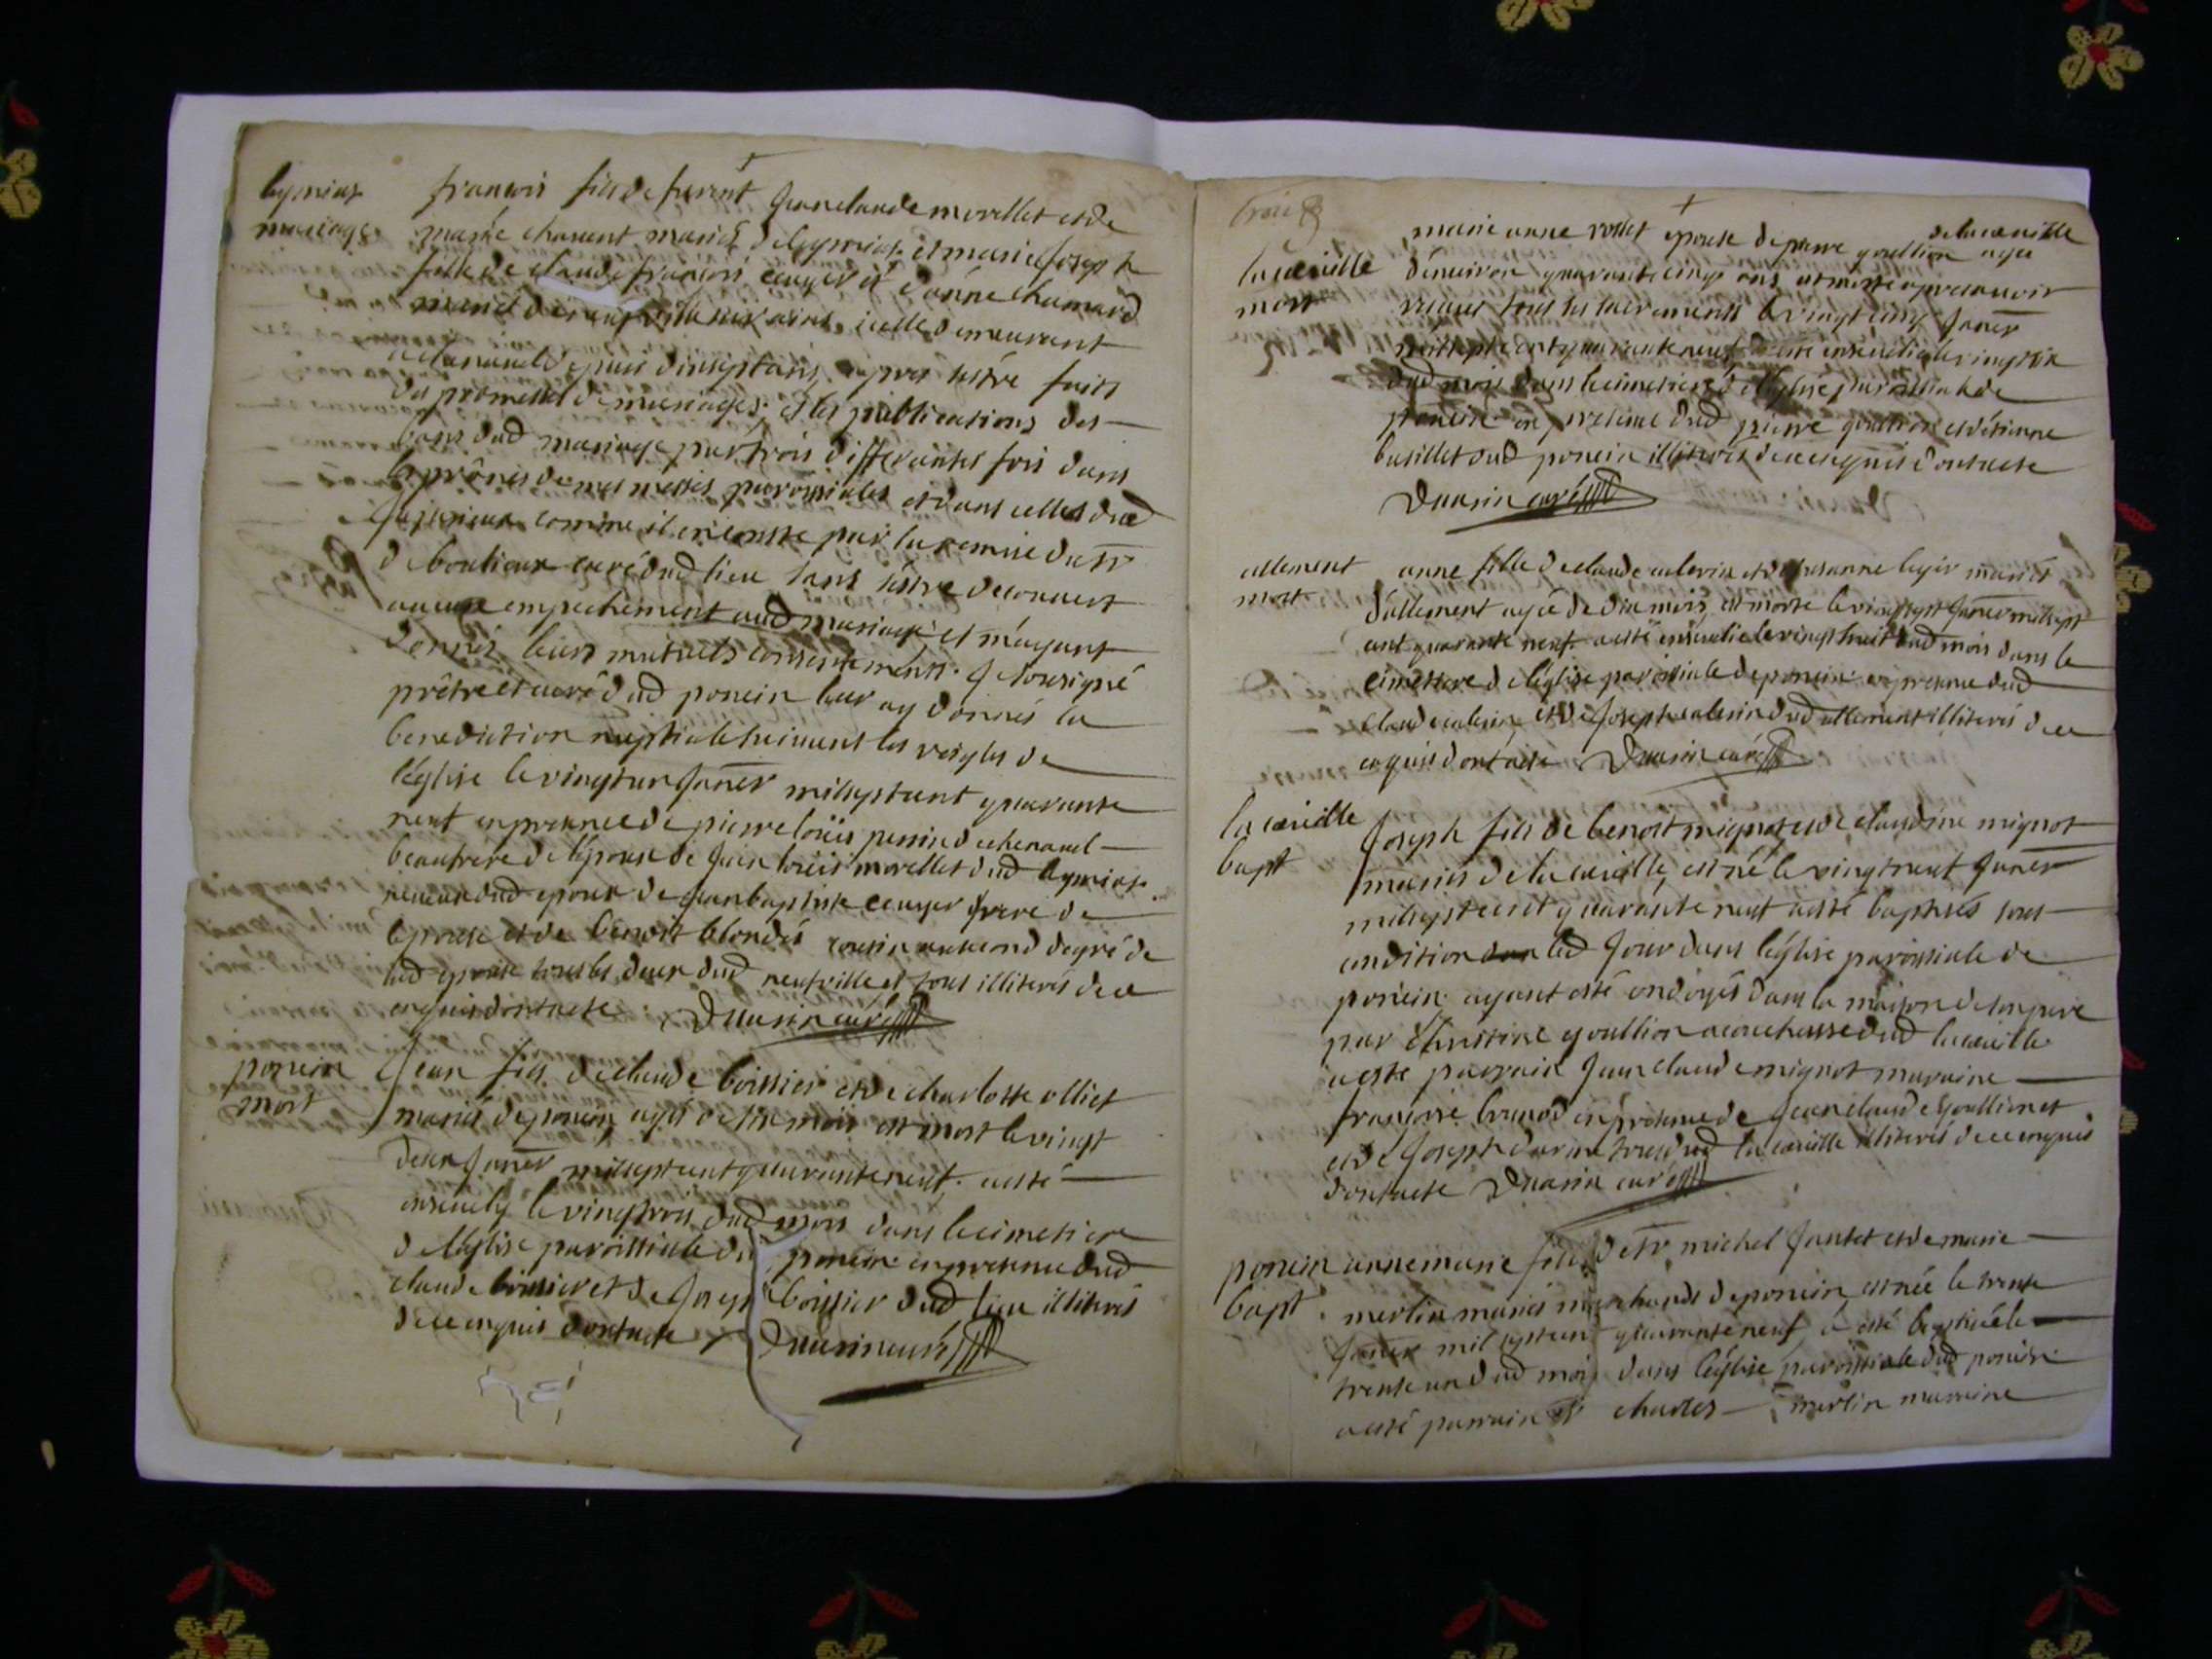 leymiat
mariage
francois fils de furent Jean claude morellet et de
marie chanent mariés de leymiat et marie Joseph
fille de claude francois ceuyer et d'anne chamard
mariés de neufville sur ains icelle demeurant
a chenavel depuis dixsept ans, apres sestre faits
des promesses de mariages, et les publications des
bans dud mariage par trois differantes fois dans
les prônes de mes messes paroissiales et dans celles dud
Jujurieux comme il m'en conste par la remise du sr
de bouliour curé dud lieu sans sestre decouvert
aucune empechement aud mariage et m'ayant
donnés leurs mutuels consentements. Je sousigné
prêtre et curé dud poncin leur ay donnés la
benediction nuptiale suivant les reigles de
l'église le vingt un Janer mil sept cent quarante
neuf en presence de pierre loüis perrin de chenavel
beaufrere de l'épouse de Jean loüis morellet dud leymiat
neveu dud epoux de Jean baptiste ceuyer frere de
lepouse et de benoit blondés cousin au second degré de
lad epouse tous les deux dud neufville et tous illiterés de ce
enquis dont acte Duurin curé
poncin
mort
Jean fils de claude boissier et de charlotte olliet
mariés de poncin, agés de six mois est mort le vingt
deux Janer mil sept cent quarante neuf. a esté
enseuely le vingt trois dud mois dans le cimetiere
de l'église paroissiale du poncin en presence dud
claude boissier et de Joseph boissier dud lieu illiterés
de ce enquis dont acte Duurin curé
trois
la cueille
mort
marie anne rollet epouse de pierre goullion agée
de la cueille
d'environ quarante cinq ans est morte apres avoir
receus tous les sacrements le vingt cinq Janer
mil sept cent quarante neuf a esté ensevelie le vingt six
dud mois dans le cimetiere de l'église paroissiale de
poncin en presence dud pierre goullion et d'étienne
basillet dud poncin illiterés de ce enquis dont acte
Duurin curé
allement
mort
anne fille de claude calerin et de susanne leger mariés
d'allement agée de dix mois, est morte le vingt sept Janer mil sept
cent quarante neuf. a esté ensevelie le vingt huit dud mois dans le
cimettiere de l'église paroissiale de poncin en presence dud
claude calerin et de Joseph calerin dud allement illiterés de ce
enquis dont acte Duurin curé
la cueille
bapt
Joseph fils de benoit mignot, et de claudine mignot
mariés de la cueille, est né le vingt neuf Janer
mil sept cent quarante neuf a esté baptisés sous
condition led Jour dans l'église paroissiale de
poncin ayant esté ondoyés dans la maison de son pere
par Christine goullion acoucheusse dud la cueille
a esté parrain Jean claude mignot maraine
francoise brunod en presence de Jean claude goullion et
et de Joseph darine tous dud la cueille illiterés de ce enquis
dont acte Duurin curé
poncin
bapt
anne marie fille de sr michel Jantet et de marie
merlin mariés marchands de poncin est née le trente
Janer mil sept cent quarante neuf a esté baptisée le
trente un dud mois dans l'église paroissiale dud poncin
a esté parrain sr charles merlin maraine